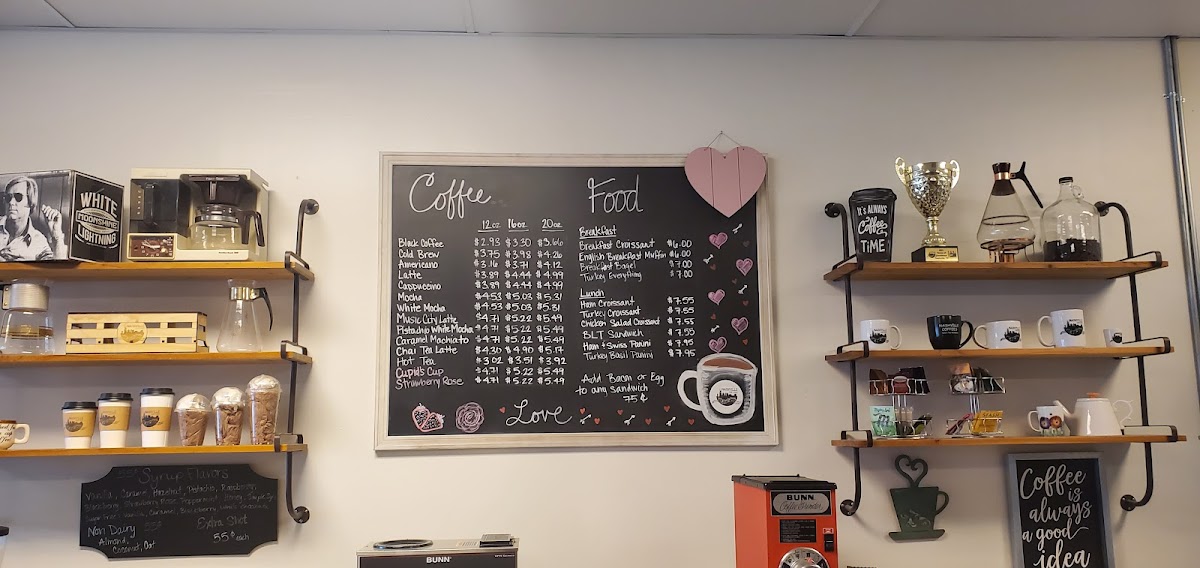 WHITE
MOONSHINE
LIGHTNING
Coffee
12oz 16oz 20oz
Black Coffee $2.93 $3.30 $3.66
Cold Brew $3.75 $3.98 $4.26
Americano $3.16 $3.71 $4.12
Latte $3.89 $4.44 $4.99
Cappuccino $3.89 $4.44 $4.99
Mocha $4.53 $5.03 $5.31
White Mocha $4.53 $5.03 $5.31
Music City Latte $4.71 $5.22 $5.49
Pistachio White Mocha $4.71 $5.22 $5.49
Caramel Machiato $4.71 $5.22 $5.49
Chai Tea Latte $4.30 $4.90 $5.17
Hot Tea $3.02 $3.51 $3.92
Cupid's Cup $4.71 $5.22 $5.49
Strawberry Rose $4.71 $5.22 $5.49
Food
Breakfast
Breakfast Croissant $6.00
English Breakfast Muffin $6.00
Breakfast Bagel $7.00
Turkey Everything $7.00
Lunch
Ham Croissant $7.55
Turkey Croissant $7.55
Chicken Salad Croissant $7.55
BLT Sandwich $7.50
Ham & Swiss Panini $7.95
Turkey Basil Panini $7.95
Add Bacon or Egg
to any Sandwich
75¢
Love
55¢ Syrup Flavors
Vanilla, Caramel, Hazelnut, Pistachio, Raspberry,
Blackberry, Strawberry, Rose, Peppermint, Honey,
Sugar Free: Vanilla, Caramel,
Non Dairy 55¢
Almond,
Coconut, Oat
Extra Shot
55¢ each
IT'S ALWAYS
Coffee
TiME
NASHVILLE
COFFEE
BUNN
BUNN
Coffee Grinder
Coffee
is
always
a good
idea